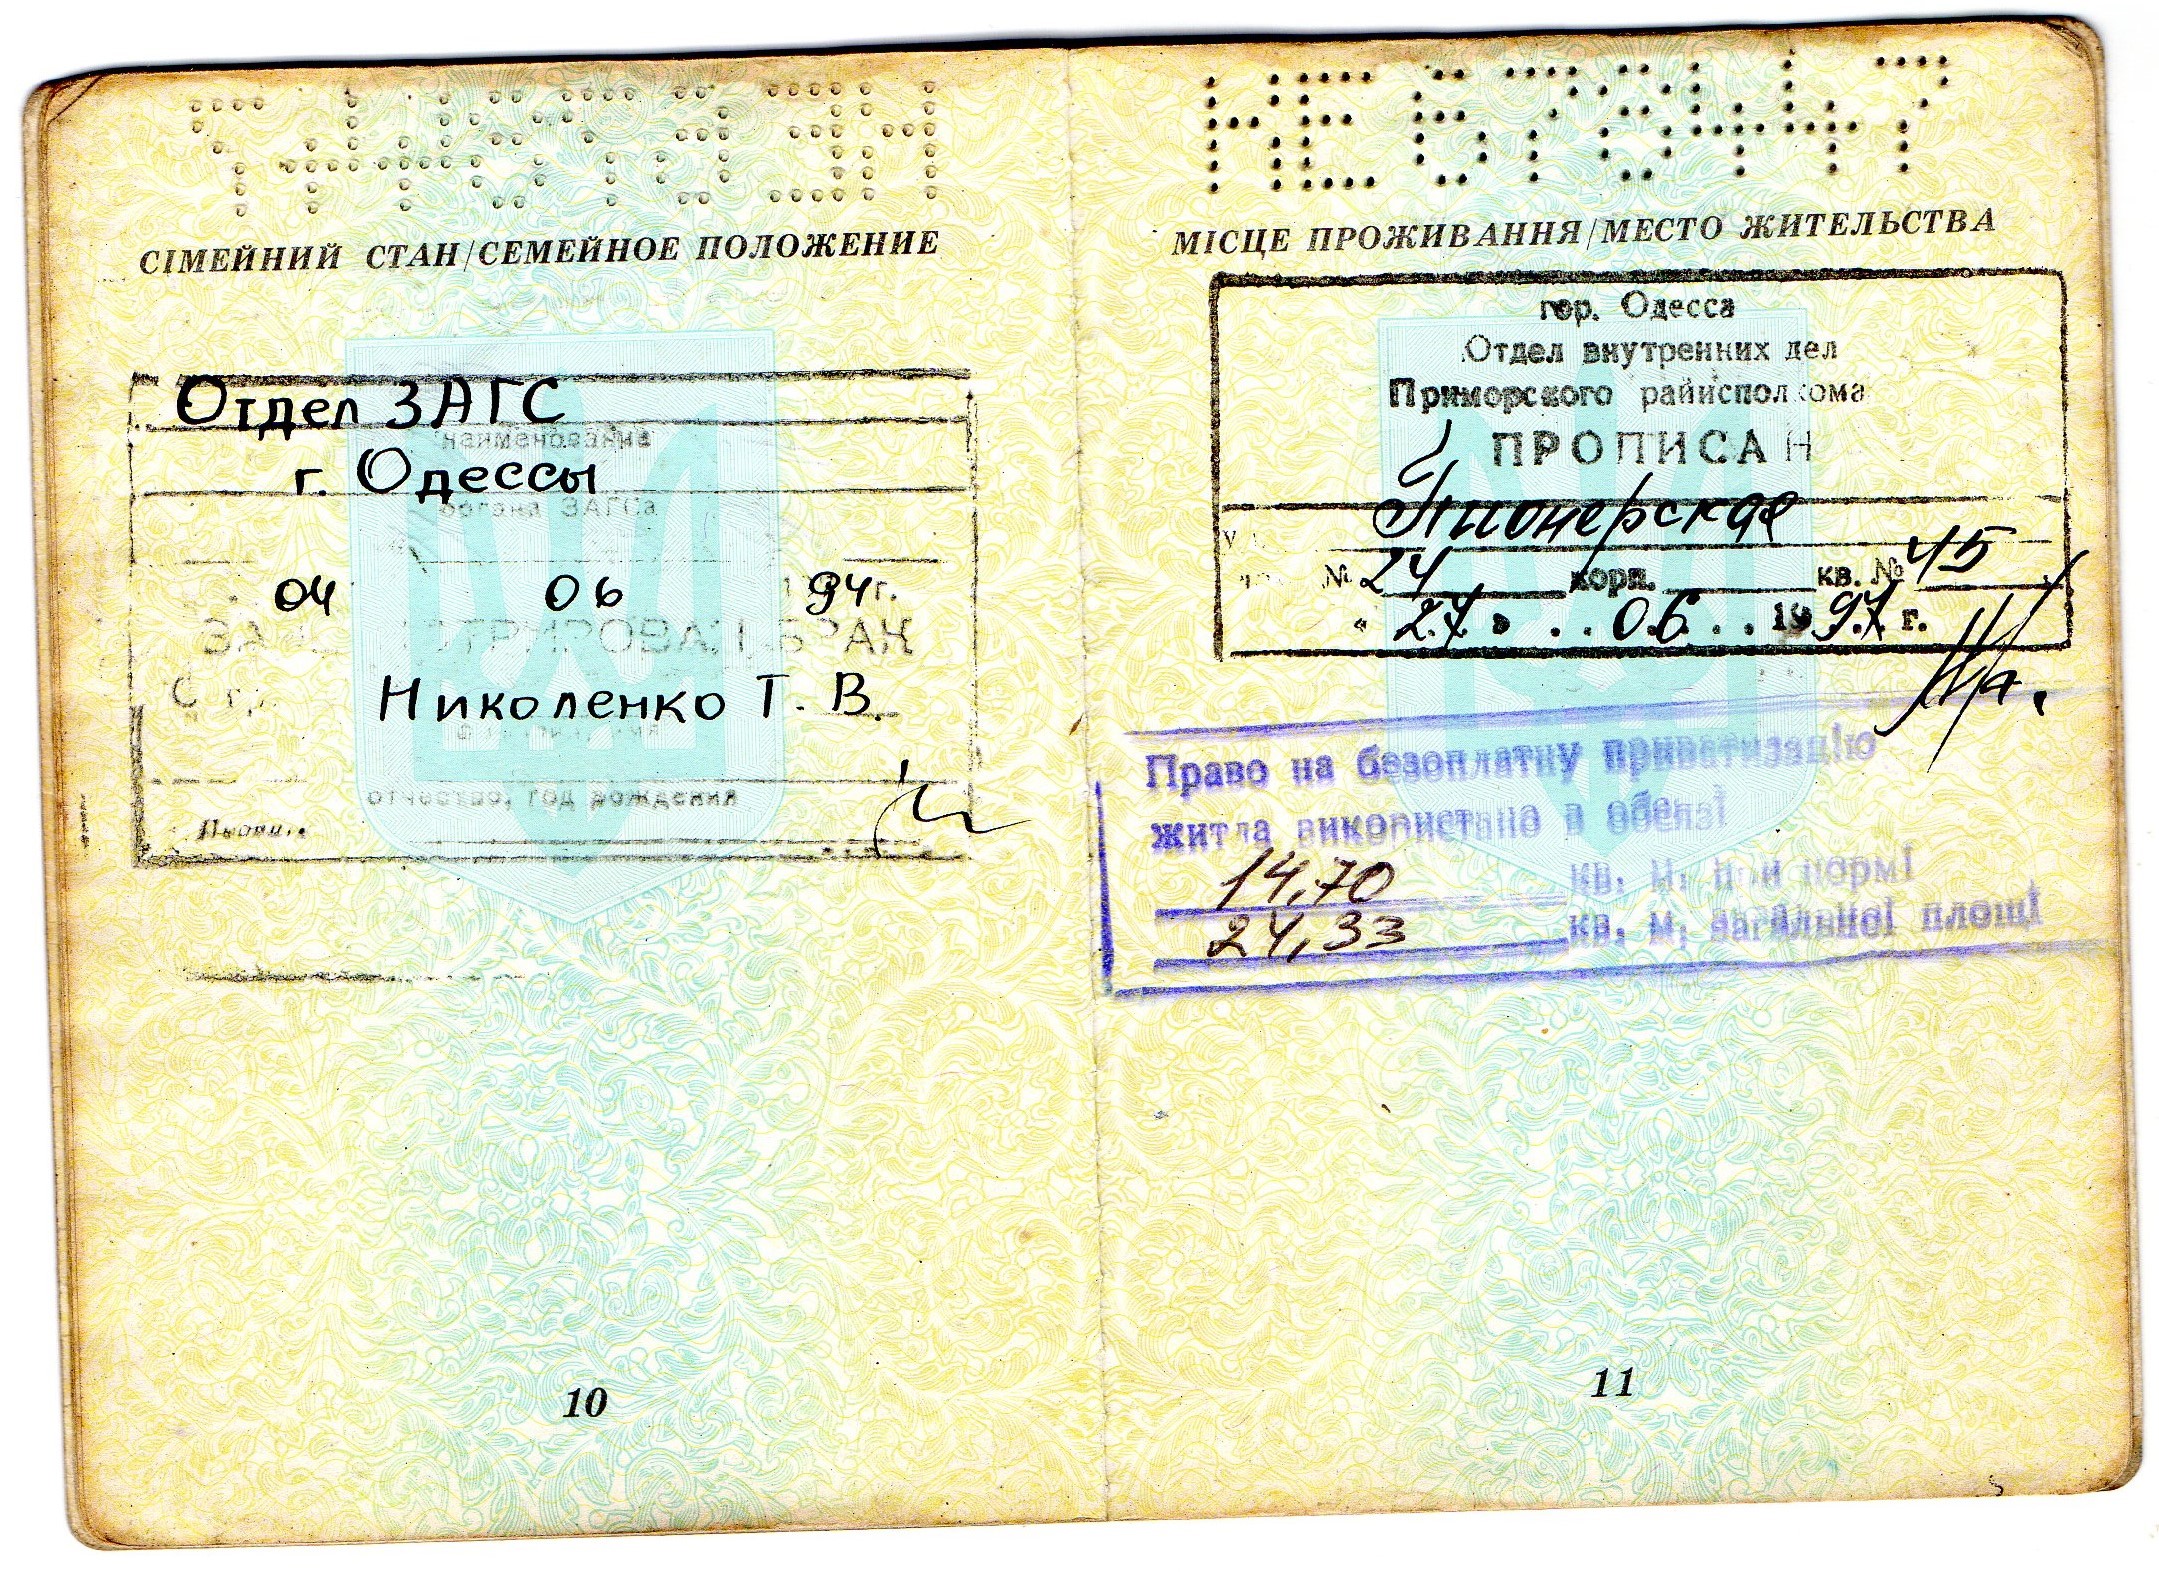 СІМЕЙНИЙ СТАН/СЕМЕЙНОЕ ПОЛОЖЕНИЕ
Отдел ЗАГС
наименование
г. Одессы
органа ЗАГСа
04 06 94 г.
БРАК
С гр.
Николенко Т. В.
отчество, год рождения
10
МЕ 678447
МІСЦЕ ПРОЖИВАННЯ/МЕСТО ЖИТЕЛЬСТВА
гор. Одесса
Отдел внутренних дел
Приморского райисполкома
ПРОПИСАН
Пионерская
№ 24 корп. кв. № 45
« 24 » 06 1997 г.
Право на безоплатну приватизацію
житла використано в обсязі
14,70 кв. м. при нормі
24,33 кв. м. загальної площі
11